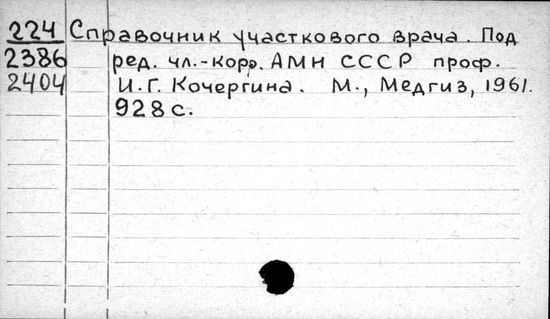 224 Справочник участкового врача. Под
2386 ред. чл.-корр. АМН СССР проф.
2404 И.Г. Кочергина. М., Медгиз, 1961.
928 с.